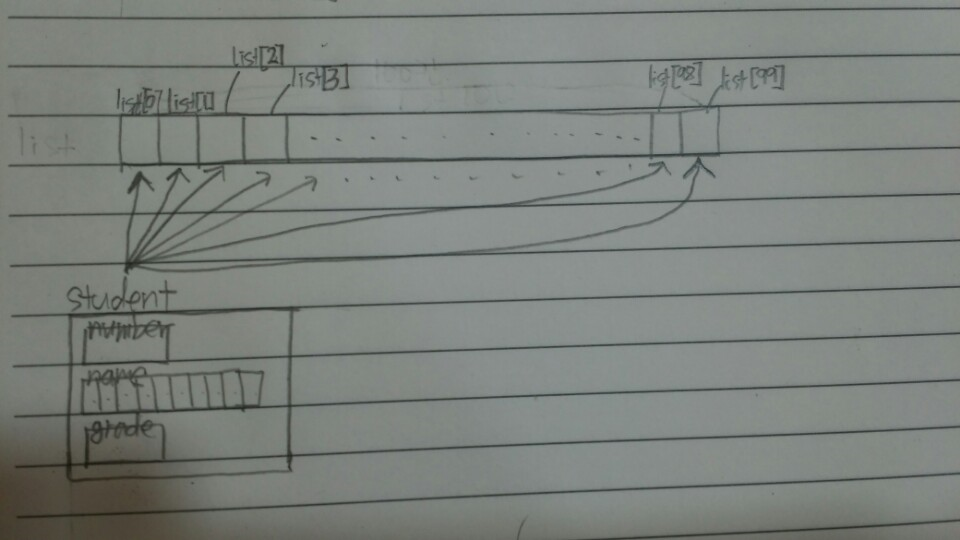 list[2]
list[3]
list[98] list[99]
list[0] list[1]
list
student
number
name
grade